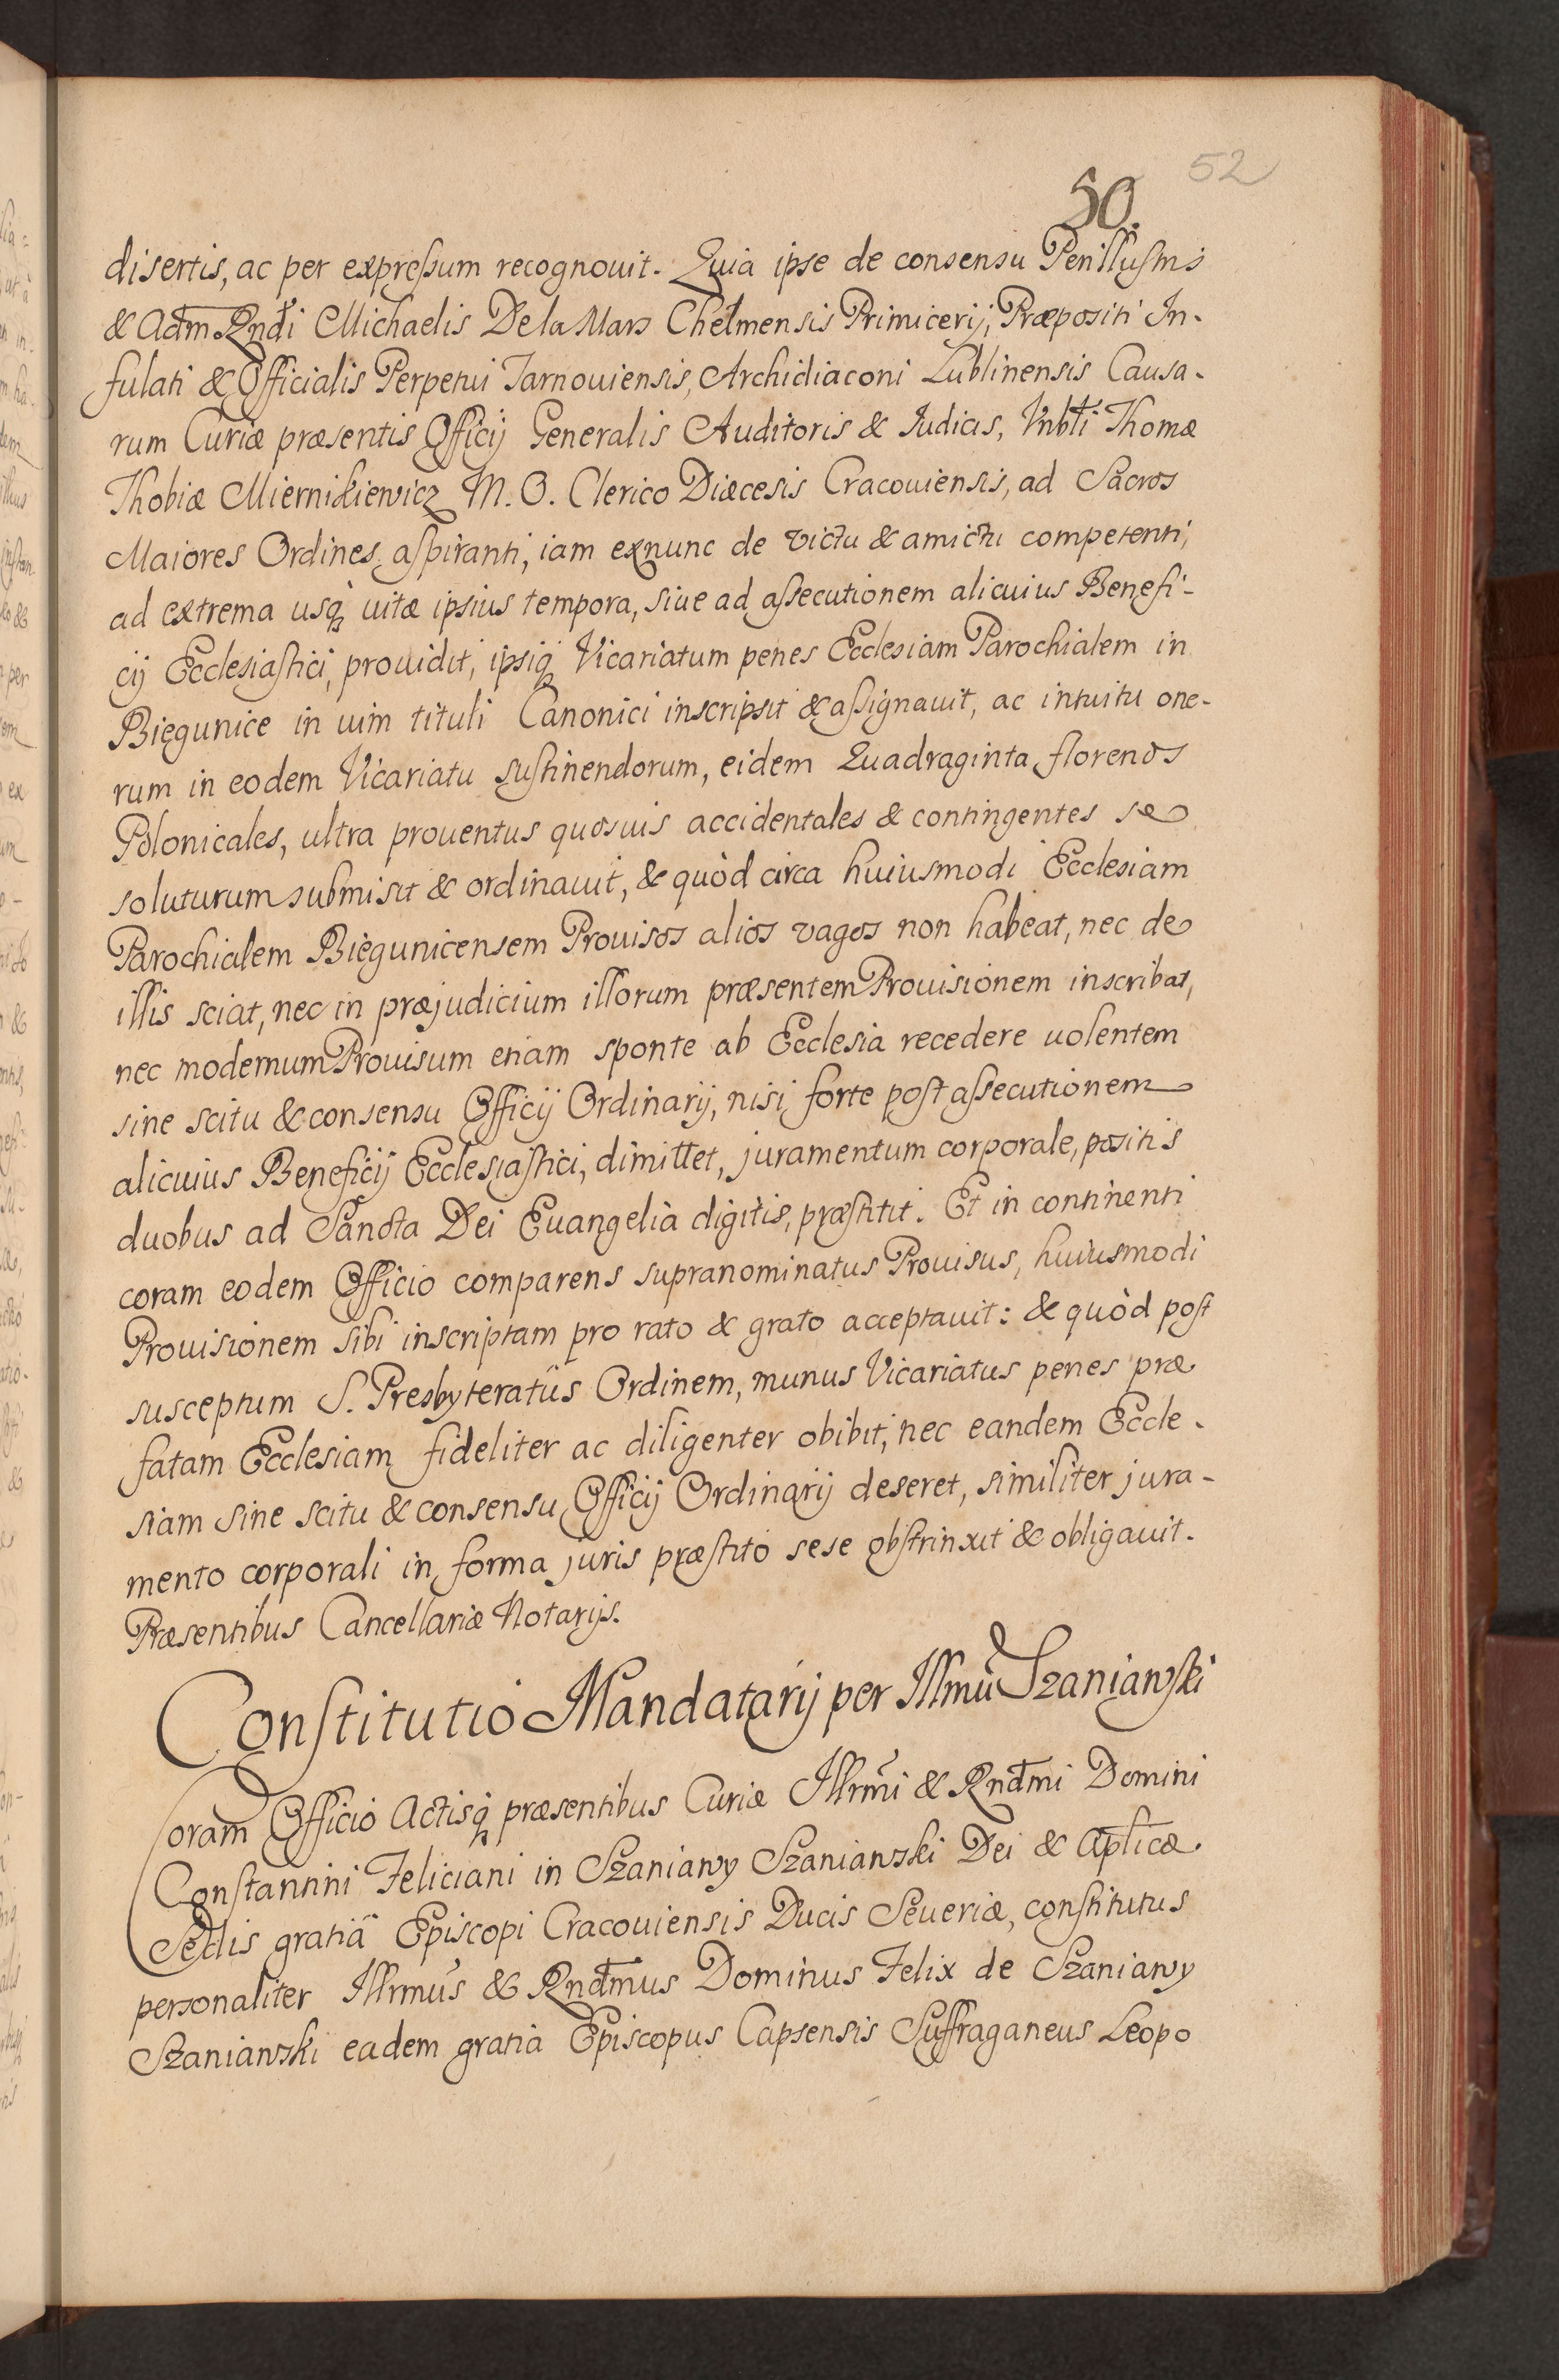 52
50.
disertis, ac per expressum recognouit. Quia ipse de consensu Perillustris
& Adm Rndi Michaelis De la Mars Chelmensis Primicerij, Præpositi In-
fulati & Officialis Perpetui Tarnouiensis, Archidiaconi Lublinensis Causa-
rum Curiæ præsentis Officij Generalis Auditoris & Iudicis, Vnbli Thomæ
Thobiæ Miernikiewicz M. O. Clerico Diæcesis Cracouiensis, ad Sacros
Maiores Ordines aspiranti, iam exnunc de victu & amictu competenti,
ad extrema usq́ uitæ ipsius tempora, siue ad assecutionem alicuius Benefi-
cij Ecclesiastici, prouidit, ipsiq́ Vicariatum penes Ecclesiam Parochialem in
Biegunice in uim tituli Canonici inscripsit & assignauit, ac intuitu one-
rum in eodem Vicariatu sustinendorum, eidem Quadraginta florenos
Polonicales, ultra prouentus quosuis accidentales & contingentes se
soluturum submisit & ordinauit, & quòd circa huiusmodi Ecclesiam
Parochialem Biegunicensem Prouisos alios vagos non habeat, nec de
illis sciat, nec in præjudicium illorum præsentem Prouisionem inscribat,
nec modernum Prouisum etiam sponte ab Ecclesia recedere uolentem
sine scitu & consensu Officij Ordinarij, nisi forte post assecutionem
alicuius Beneficij Ecclesiastici, dimittet, juramentum corporale, positis
duobus ad Sancta Dei Euangelia digitis, præstitit. Et in continenti
coram eodem Officio comparens supranominatus Prouisus, huiusmodi
Prouisionem sibi inscriptam pro rato & grato acceptauit: & quòd post
susceptum S. Presbyteratûs Ordinem, munus Vicariatus penes præ
fatam Ecclesiam fideliter ac diligenter obibit, nec eandem Eccle-
siam sine scitu & consensu Officij Ordinarij deseret, similiter jura-
mento corporali in forma juris præstito sese obstrinxit & obligauit.
Præsentibus Cancellariæ Notarijs.
Constitutio Mandatarij per Illmũ Szaniawski
Coram Officio Actisq́ præsentibus Curiæ Illrmi & Rndmi Domini
Constantini Feliciani in Szaniawy Szaniawski Dei & Aplicæ
Sedis gratiâ Episcopi Cracouiensis Ducis Seueriæ, constitutus
personaliter Illrmus & Rndmus Dominus Felix de Szaniawy
Szaniawski eadem gratia Episcopus Capsensis Suffraganeus Leopo